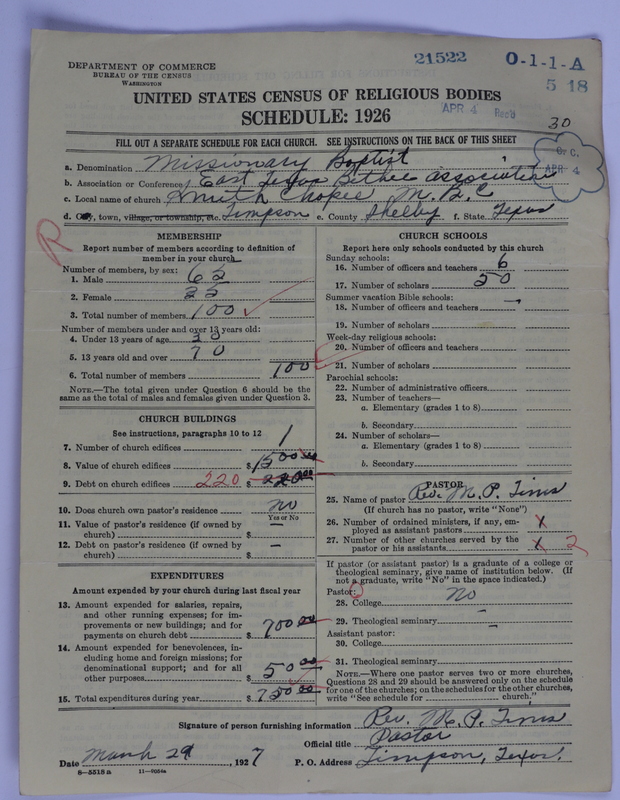 DEPARTMENT OF COMMERCE
BUREAU OF THE CENSUS
WASHINGTON
21522 O-1-1-A
5 18
UNITED STATES CENSUS OF RELIGIOUS BODIES
SCHEDULE: 1926
APR 4 Rec'd
30
FILL OUT A SEPARATE SCHEDULE FOR EACH CHURCH. SEE INSTRUCTIONS ON THE BACK OF THIS SHEET
O. C.
APR 4
a. Denomination Missionary Baptist
b. Association or Conference East Texas Bethel association
c. Local name of church Smith M. B. C
d. City, town, village, or township, etc. Timpson e. County Shelby f. State Texas
R
MEMBERSHIP
Report number of members according to definition of
member in your church
Number of members, by sex:
1. Male 65
2. Female 35
3. Total number of members 100
Number of members under and over 13 years old:
4. Under 13 years of age 30
5. 13 years old and over 70
6. Total number of members 100
NOTE.—The total given under Question 6 should be the
same as the total of males and females given under Question 3.
CHURCH BUILDINGS
See instructions, paragraphs 10 to 12
7. Number of church edifices 1
8. Value of church edifices $1500.00
9. Debt on church edifices 220 $ 220.00
10. Does church own pastor's residence no
Yes or No
11. Value of pastor's residence (if owned by
church) $ —
12. Debt on pastor's residence (if owned by
church) $ —
EXPENDITURES
Amount expended by your church during last fiscal year
13. Amount expended for salaries, repairs,
and other running expenses; for im-
provements or new buildings; and for
payments on church debt $ 700 00
14. Amount expended for benevolences, in-
cluding home and foreign missions; for
denominational support; and for all
other purposes $ 50 00
15. Total expenditures during year $ 750 00
CHURCH SCHOOLS
Report here only schools conducted by this church
Sunday schools:
16. Number of officers and teachers 6
17. Number of scholars 50
Summer vacation Bible schools:
18. Number of officers and teachers —
19. Number of scholars
Week-day religious schools:
20. Number of officers and teachers
21. Number of scholars
Parochial schools:
22. Number of administrative officers
23. Number of teachers—
a. Elementary (grades 1 to 8)
b. Secondary
24. Number of scholars—
a. Elementary (grades 1 to 8)
b. Secondary
PASTOR
25. Name of pastor Rev. M. P. Tims
(If church has no pastor, write "None")
26. Number of ordained ministers, if any, em-
ployed as assistant pastors x
27. Number of other churches served by the
pastor or his assistants x 2
If pastor (or assistant pastor) is a graduate of a college or
theological seminary, give name of institution below. (If
not a graduate, write "No" in the space indicated.)
Pastor:
28. College No
29. Theological seminary —
Assistant pastor:
30. College —
31. Theological seminary
NOTE.—Where one pastor serves two or more churches,
Questions 28 and 29 should be answered only on the schedule
for one of the churches; on the schedules for the other churches,
write "See schedule for church."
Signature of person furnishing information Rev. M. P. Tims
Official title Pastor
Date March 29, 1927 P. O. Address Timpson, Texas.
8-5518a 11-9054a